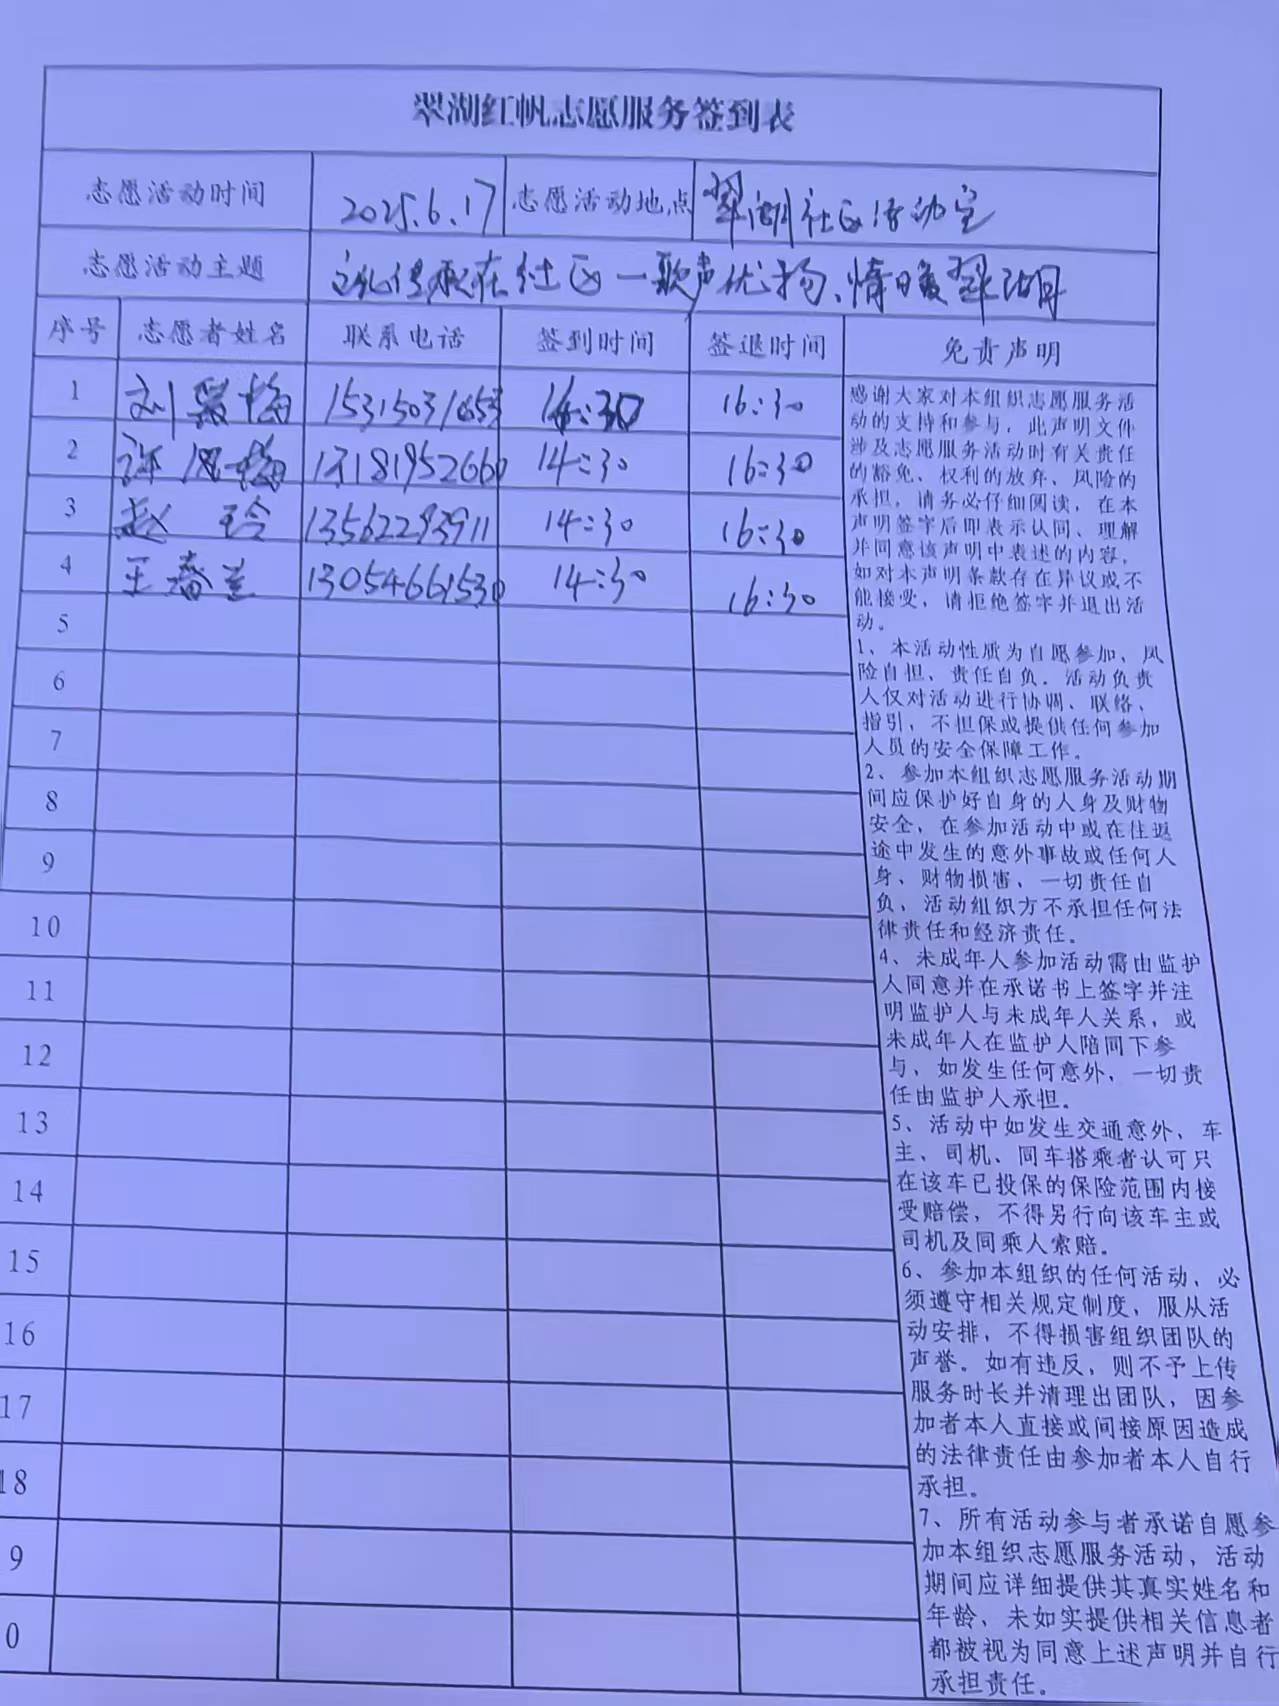 翠湖红帆志愿服务签到表
志愿活动时间 2025.6.17 志愿活动地点 翠湖社区活动室
志愿活动主题 文化传承在社区一歌声优扬、情暖翠湖
序号 志愿者姓名 联系电话 签到时间 签退时间 免责声明
1 刘 梅 15315031653 14:30 16:30
2 许 梅 13181952660 14:30 16:30
3 赵 玲 13562293911 14:30 16:30
4 王春兰 13054661530 14:30 16:30
5
6
7
8
9
10
11
12
13
14
15
16
17
18
9
0
感谢大家对本组织志愿服务活
动的支持和参与，此声明文件
涉及志愿服务活动时有关责任
的豁免、权利的放弃、风险的
承担，请务必仔细阅读，在本
声明签字后即表示认同、理解
并同意该声明中表述的内容，
如对本声明条款存在异议或不
能接受，请拒绝签字并退出活
动。
1、本活动性质为自愿参加、风
险自担、责任自负。活动负责
人仅对活动进行协调、联络、
指引，不担保或提供任何参加
人员的安全保障工作。
2、参加本组织志愿服务活动期
间应保护好自身的人身及财物
安全，在参加活动中或在往返
途中发生的意外事故或任何人
身、财物损害，一切责任自
负，活动组织方不承担任何法
律责任和经济责任。
4、未成年人参加活动需由监护
人同意并在承诺书上签字并注
明监护人与未成年人关系，或
未成年人在监护人陪同下参
与，如发生任何意外，一切责
任由监护人承担。
5、活动中如发生交通意外，车
主、司机、同车搭乘者认可只
在该车已投保的保险范围内接
受赔偿，不得另行向该车主或
司机及同乘人索赔。
6、参加本组织的任何活动，必
须遵守相关规定制度，服从活
动安排，不得损害组织团队的
声誉。如有违反，则不予上传
服务时长并清理出团队，因参
加者本人直接或间接原因造成
的法律责任由参加者本人自行
承担。
7、所有活动参与者承诺自愿参
加本组织志愿服务活动，活动
期间应详细提供其真实姓名和
年龄，未如实提供相关信息者
都被视为同意上述声明并自行
承担责任。